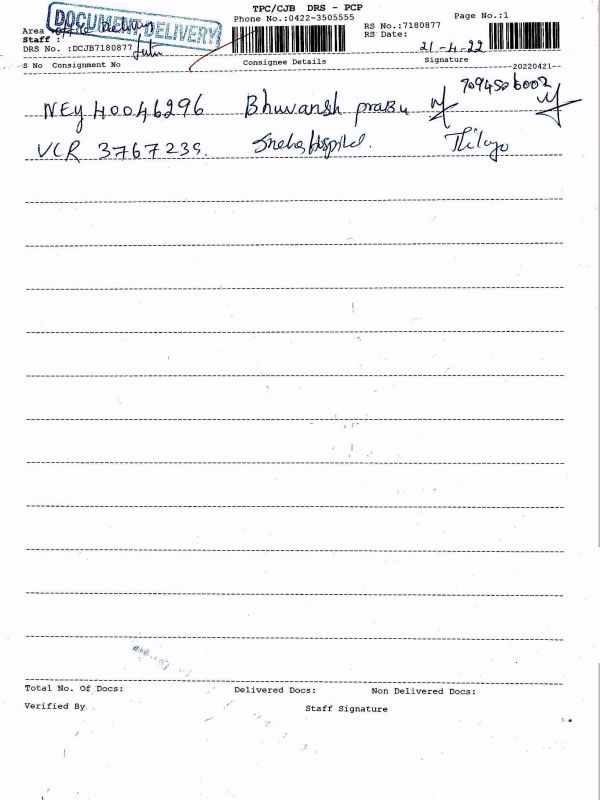 TPC/CJB DRS - PCP
Phone No.:0422-3505555 Page No.:1
DOCUMENT DELIVERY
Area : office Delivery RS No.:7180877
Staff : RS Date: 21-4-22
DRS No. :DCJB7180877
S No Consignment No Consignee Details Signature --20220421--
7094506002
NEY 40046296 Bhuvansh prabu
VCR 3767239. Sneha Hospital. Thilaga
Total No. Of Docs: Delivered Docs: Non Delivered Docs:
Verified By Staff Signature